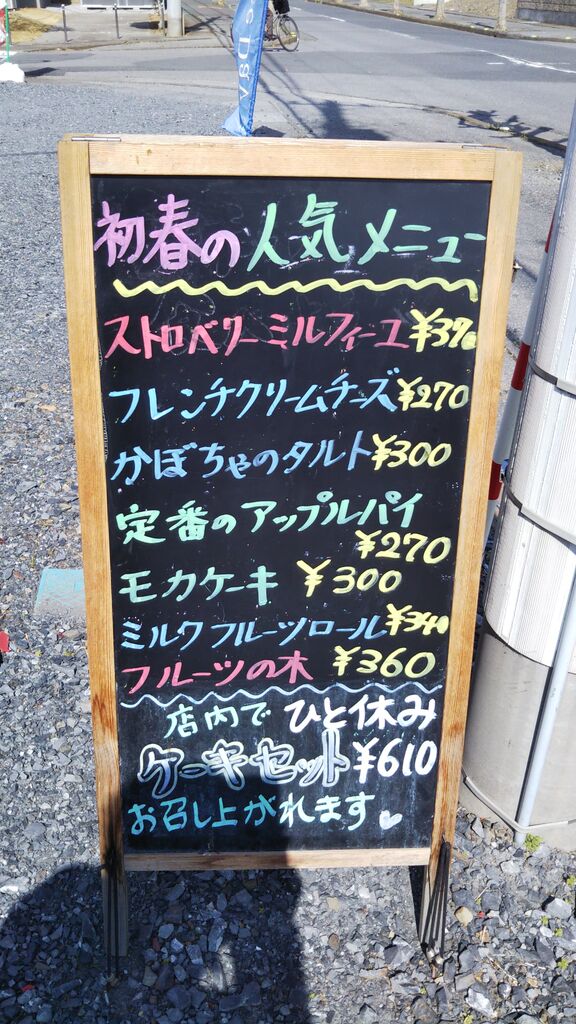 Day
初春の人気メニュー
ストロベリーミルフィーユ ¥390
フレンチクリームチーズ ¥270
かぼちゃのタルト ¥300
定番のアップルパイ
¥270
モカケーキ ¥300
ミルクフルーツロール ¥340
フルーツの木 ¥360
店内で ひと休み
ケーキセット ¥610
お召し上がれます